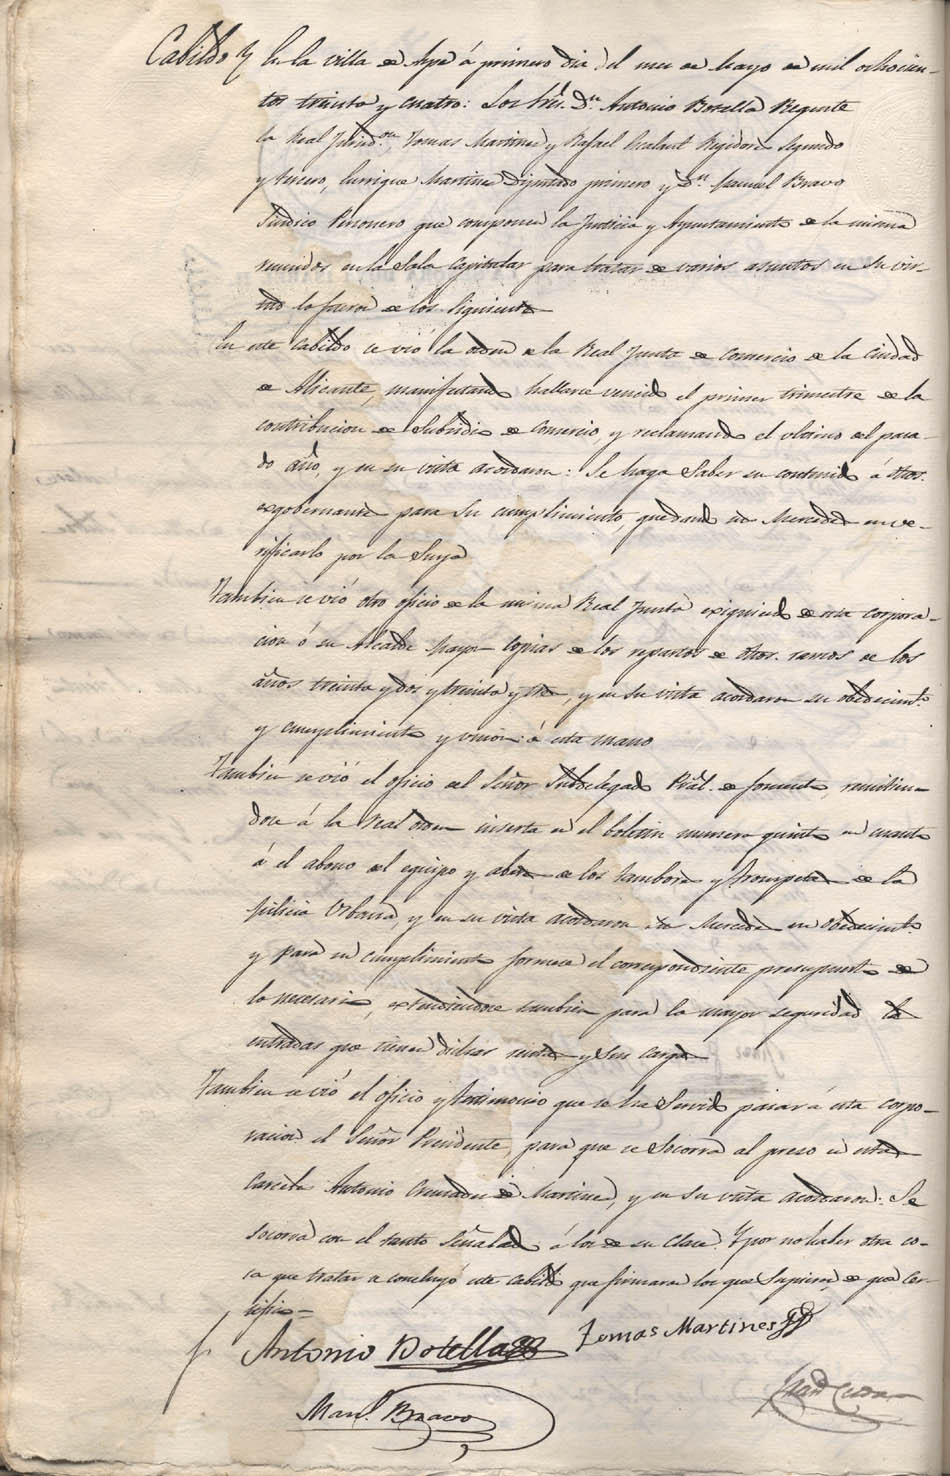 Cabildo En la villa de Aspe á primero dia del mes de Mayo de mil ochocien-
tos treinta y cuatro: Los Sres. Dn. Antonio Botella Regente
la Real Jurisd.on, Tomas Martinez y Rafael Regidores Segundo
y tercero, Enrrique Martinez Diputado primero y Dn. Manuel Bravo
Sindico Personero que componen la Justicia y Ayuntamiento de la misma
reunidos en la Sala Capitular para tratar de varios asuntos en su vir-
tud lo fueron de los Siguientes
En este Cabildo se vió la orden de la Real Junta de Comercio de la Ciudad
de Alicante, manifestando hallarse vencido el primer trimestre de la
contribucion de Subsidio de Comercio, y reclamando el ultimo del pasa-
do año, y en su vista acordaron: Se haga Saber su contenido á dhos.
exgobernantes para su cumplimiento, quedando sus Mercedes en ve-
rificarlo por la Suya
Tambien se vió otro oficio de la misma Real Junta exigiendo de esta corpora-
cion ó su Alcalde Mayor Copias de los repartos de dhos. ramos de los
años treinta y dos y treinta y tres, y en su vista acordaron su obedecimto.
y cumplimiento y union á esta mano
Tambien se vió el oficio del Señor Subdelegado Pral. de fomento, remitien-
dose á la Real orden inserta en el boletin numero quinto en cuanto
á el abono del equipo y de los tambores y trompetas de la
Milicia Urbana, y en su vista acordaron sus Mercedes su obedecimto.
y para su cumplimiento formese el correspondiente presupuesto de
lo necesario, extendiendose tambien para la mayor seguridad las
entradas que tienen dichas y sus cargas
Tambien se vió el oficio y testimonio que se ha Servido pasar á esta corpo-
racion el Señor Presidente, para que se Socorra al preso en estas
Carceles Antonio Cremades de Martinez, y en su vista acordaron: Se
socorra con el tanto Señalado á los de su clase. Y por no haber otra co-
sa que tratar se concluyó este cabildo que firmaron los que Supieron, de que cer-
tifico=
Antonio Botella
Tomas Martines
Manl. Bravo